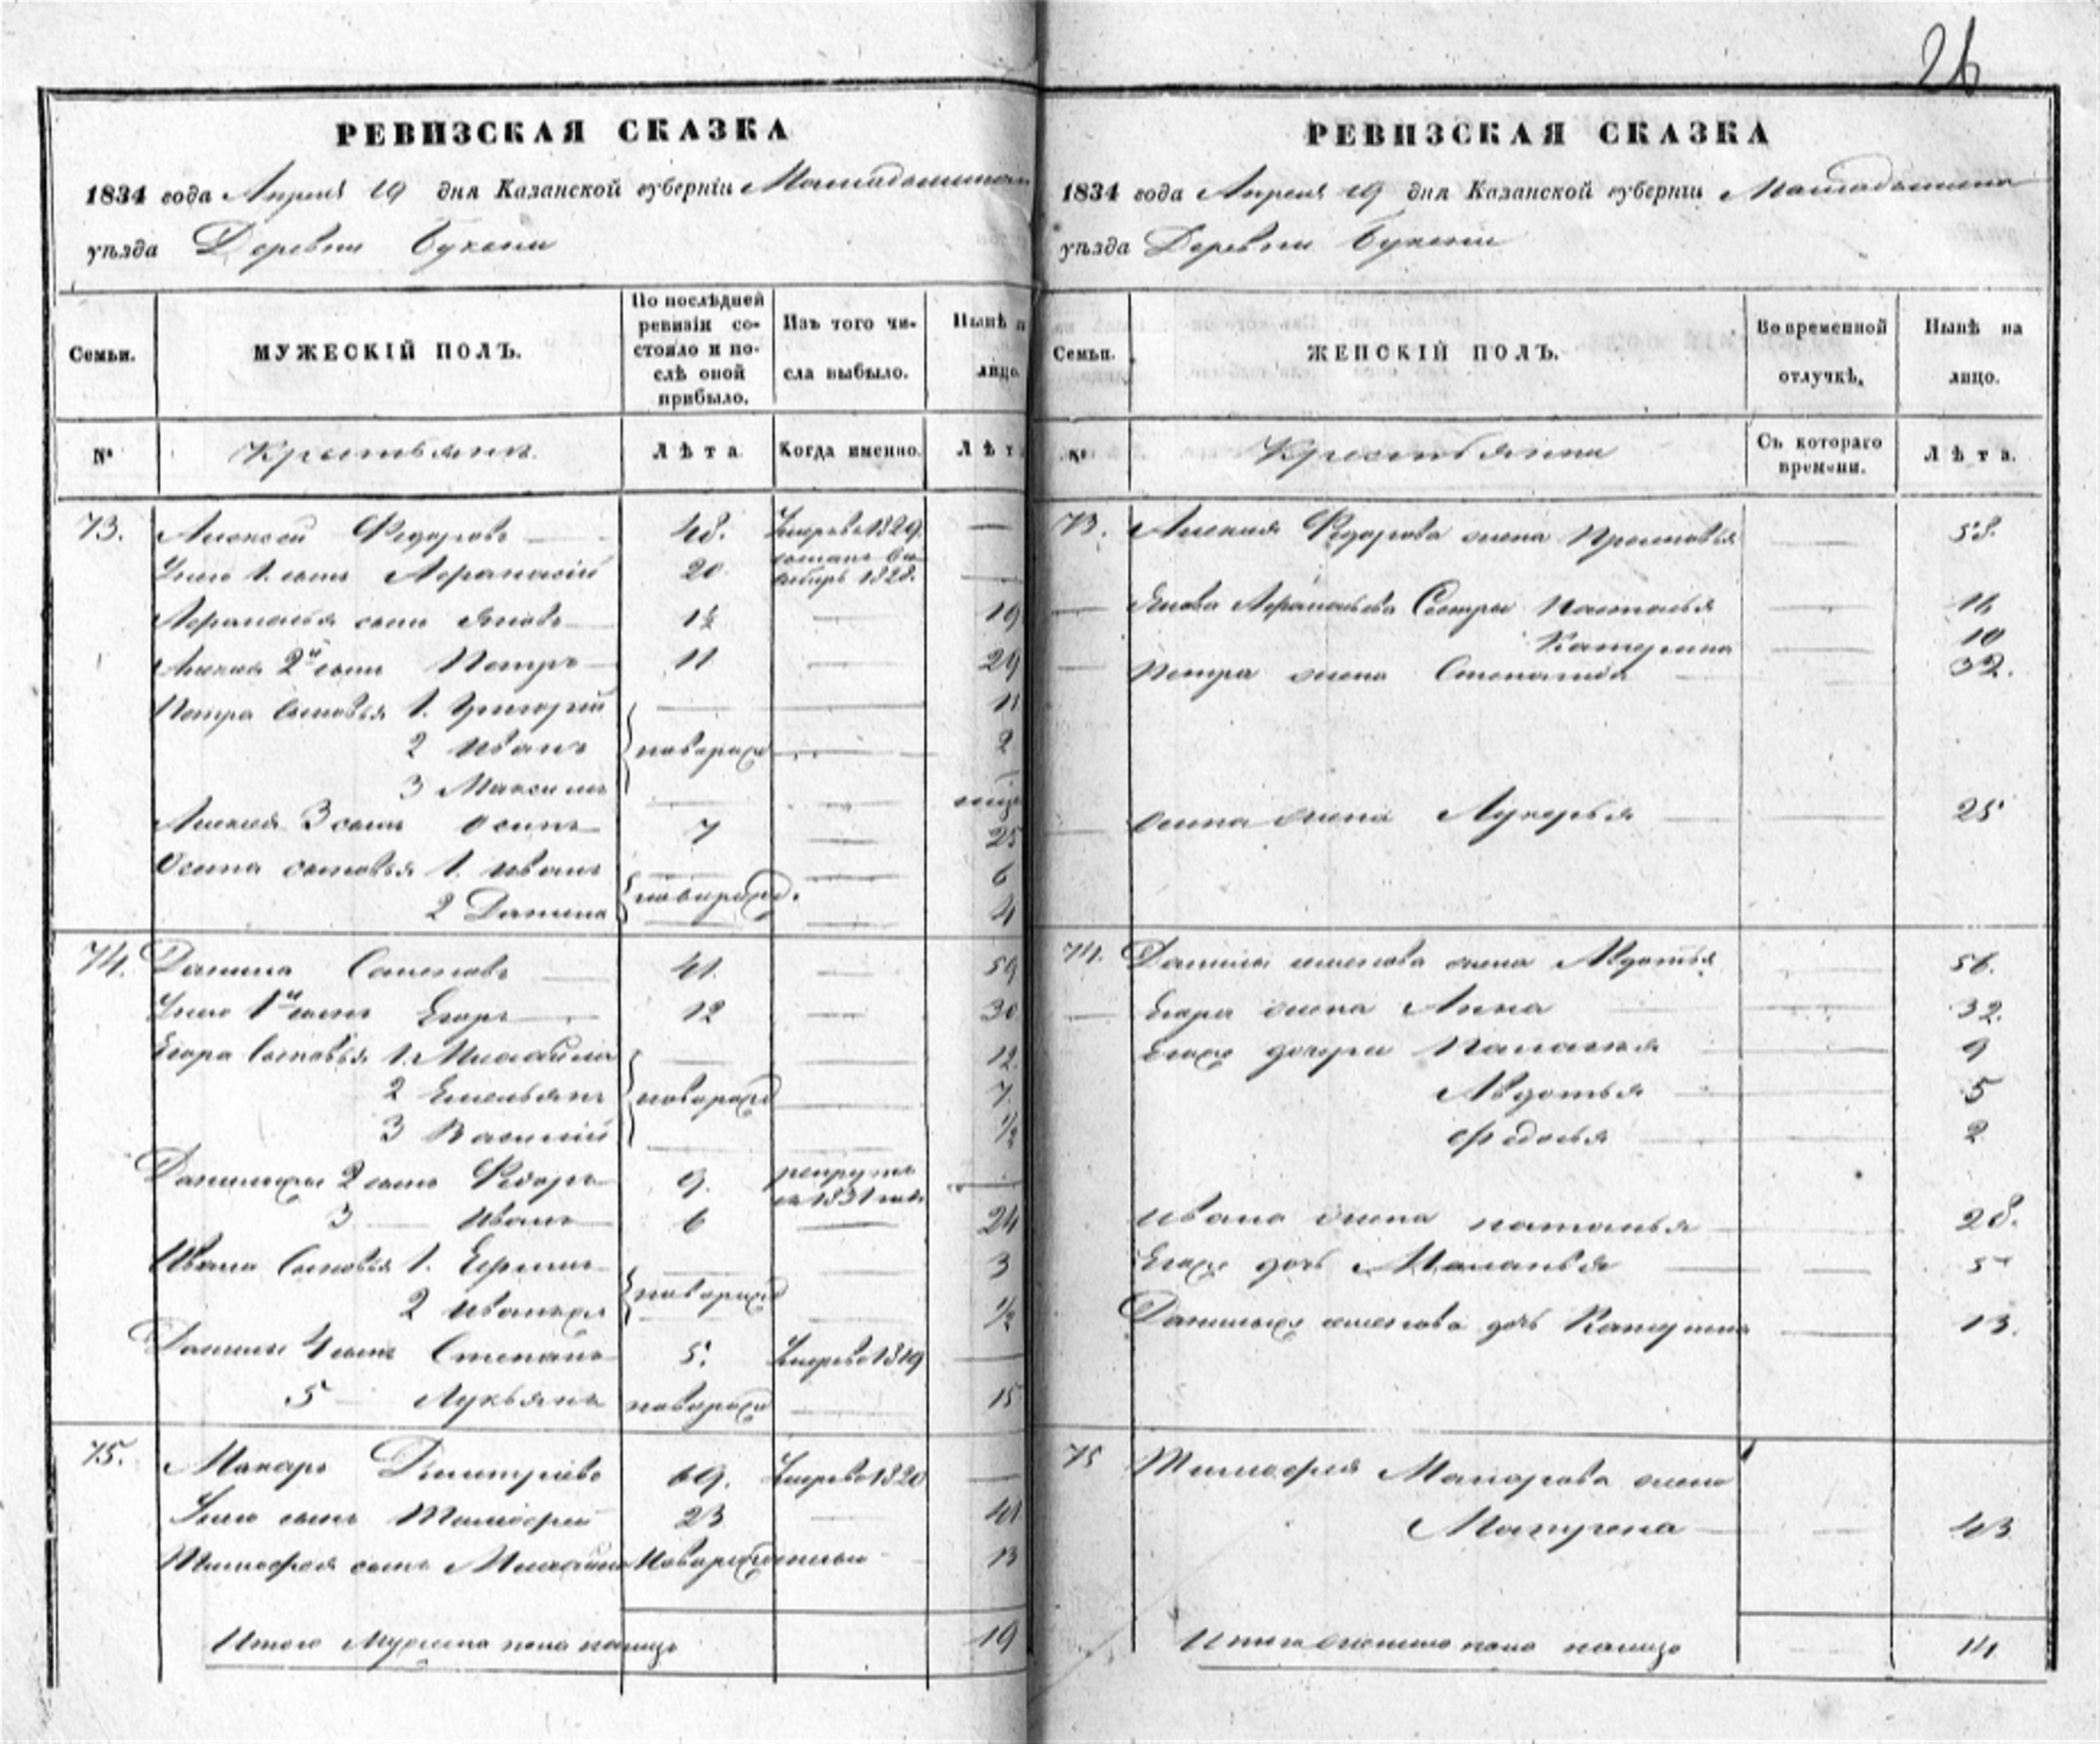 26
РЕВИЗСКАЯ СКАЗКА
1834 года Апреля 19 дня Казанской губерніи Мамадышскаго
уѣзда Деревни Букени
Семьи.
МУЖЕСКІЙ ПОЛЪ.
По послѣдней ревизіи состояло и послѣ оной прибыло.
Изъ того числа выбыло.
Нынѣ на лицо.
№ Крестьянъ Лѣта Когда именно. Лѣт
73. Алексей Федоровъ 48. Умеръ въ 1829. —
Ево 1. сынъ Афанасій 20 1828. —
Афанасья сынъ Яковъ 1½ — 19
Алексея 2й сынъ Петръ 11 — 29
Петра сыновья 1. Григорій — — 11
2 Иванъ новорожд — 2
3 Максимъ — —
Алексея 3 сынъ Осипъ 7 — 25
Осипа сыновья 1. Иванъ — — 6
2 Данила новорожд. — 4
74. Данила Семеновъ 41. — 59
Ево 1й сынъ Егоръ 12 — 30
Егора сыновья 1. Михайла — — 12
2 Емельянъ новорожд — 7.
3 Василій — — ½
Данилы 2 сынъ Федоръ 9. рекрутъ въ 1831 —
3 — Иванъ 6 — 24
Ивана сыновья 1. Ефимъ — — 3
2 новорожд ½
Данилы 4 сынъ Степанъ 5. Умеръ въ 1819 —
5 — Лукьянъ новорожд — 15
75. Макаръ Дмитріевъ 69. Умеръ въ 1820 —
Ево сынъ Тимофей 23 — 41
Тимофея сынъ Михайла Новорожденный 13
Итого мужска пола налицо 19
РЕВИЗСКАЯ СКАЗКА
1834 года Апреля 19 дня Казанской губерніи Мамадышскаго
уѣзда Деревни Букени
Семьи.
ЖЕНСКІЙ ПОЛЪ.
Во временной отлучкѣ.
Нынѣ на лицо.
№ Крестьянки Съ котораго времени. Лѣта.
73. Алексея Федорова жена Прасковья — 58.
— Якова Афанасьева Сестры Наталья — 16
Катерина — 10
— Петра жена Степанида — 32.
— Осипа жена Лукерья — 25
74. Данилы Семенова жена Авдотья — 56.
— Егора жена Анна — 32.
Егора дочери Палагея — 9
Авдотья — 5
Федосья — 2
Ивана жена Наталья — 28.
дочь Маланья — 5
Данилы Семенова дочь Катерина — 13.
75 Тимофея Макарова жена
Матрена — 43
Итого женска пола налицо 14